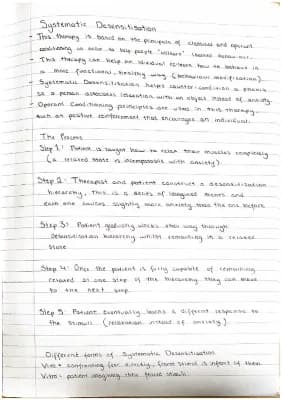 Systematic Desensitisation
- This therapy is based on the principles of classical and operant
conditioning in order to help people "unlearn" learned behaviour.
- This therapy can help an individual re-learn how to behave in
a more functional, healthy way (behaviour modification).
- Systematic Desensitisation helps counter-condition a phobia
so a person associates relaxation with an object instead of anxiety.
- Operant Conditioning principles are used in this therapy,
such as positive reinforcement that encourages an individual.
The Process
Step 1: Patient is taught how to relax their muscles completely
(a relaxed state is incompatible with anxiety).
Step 2: Therapist and patient construct a desensitisation
hierarchy, this is a series of imagined scenes and
each one causes slightly more anxiety than the one before
Step 3: Patient gradually works their way through
desensitisation hierarchy whilst remaining in a relaxed
state
Step 4: Once the patient is fully capable of remaining
relaxed at one step of the hierarchy they can move
to the next step.
Step 5: Patient eventually learns a different response to
the stimuli (relaxation instead of anxiety).
Different forms of Systematic Desensitisation
Vivo = confronting fear directly, feared stimuli is infront of them
Vitro = patient imagines their feared stimuli.